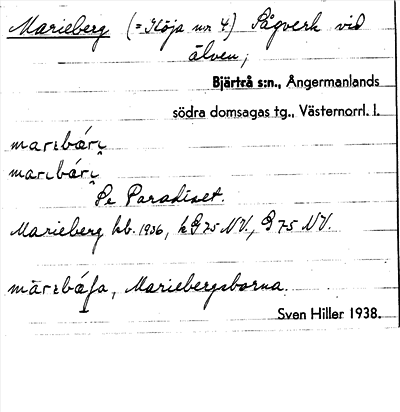 Marieberg (= Höja nr 4) Sågverk vid
älven;
Bjärtrå s:n., Ångermanlands
södra domsagas tg., Västernorrl. l.
Se Paradiset.
Marieberg hb. 1936, kG 75 NV., G 75 NV.
Mariebergsborna.
Sven Hiller 1938.